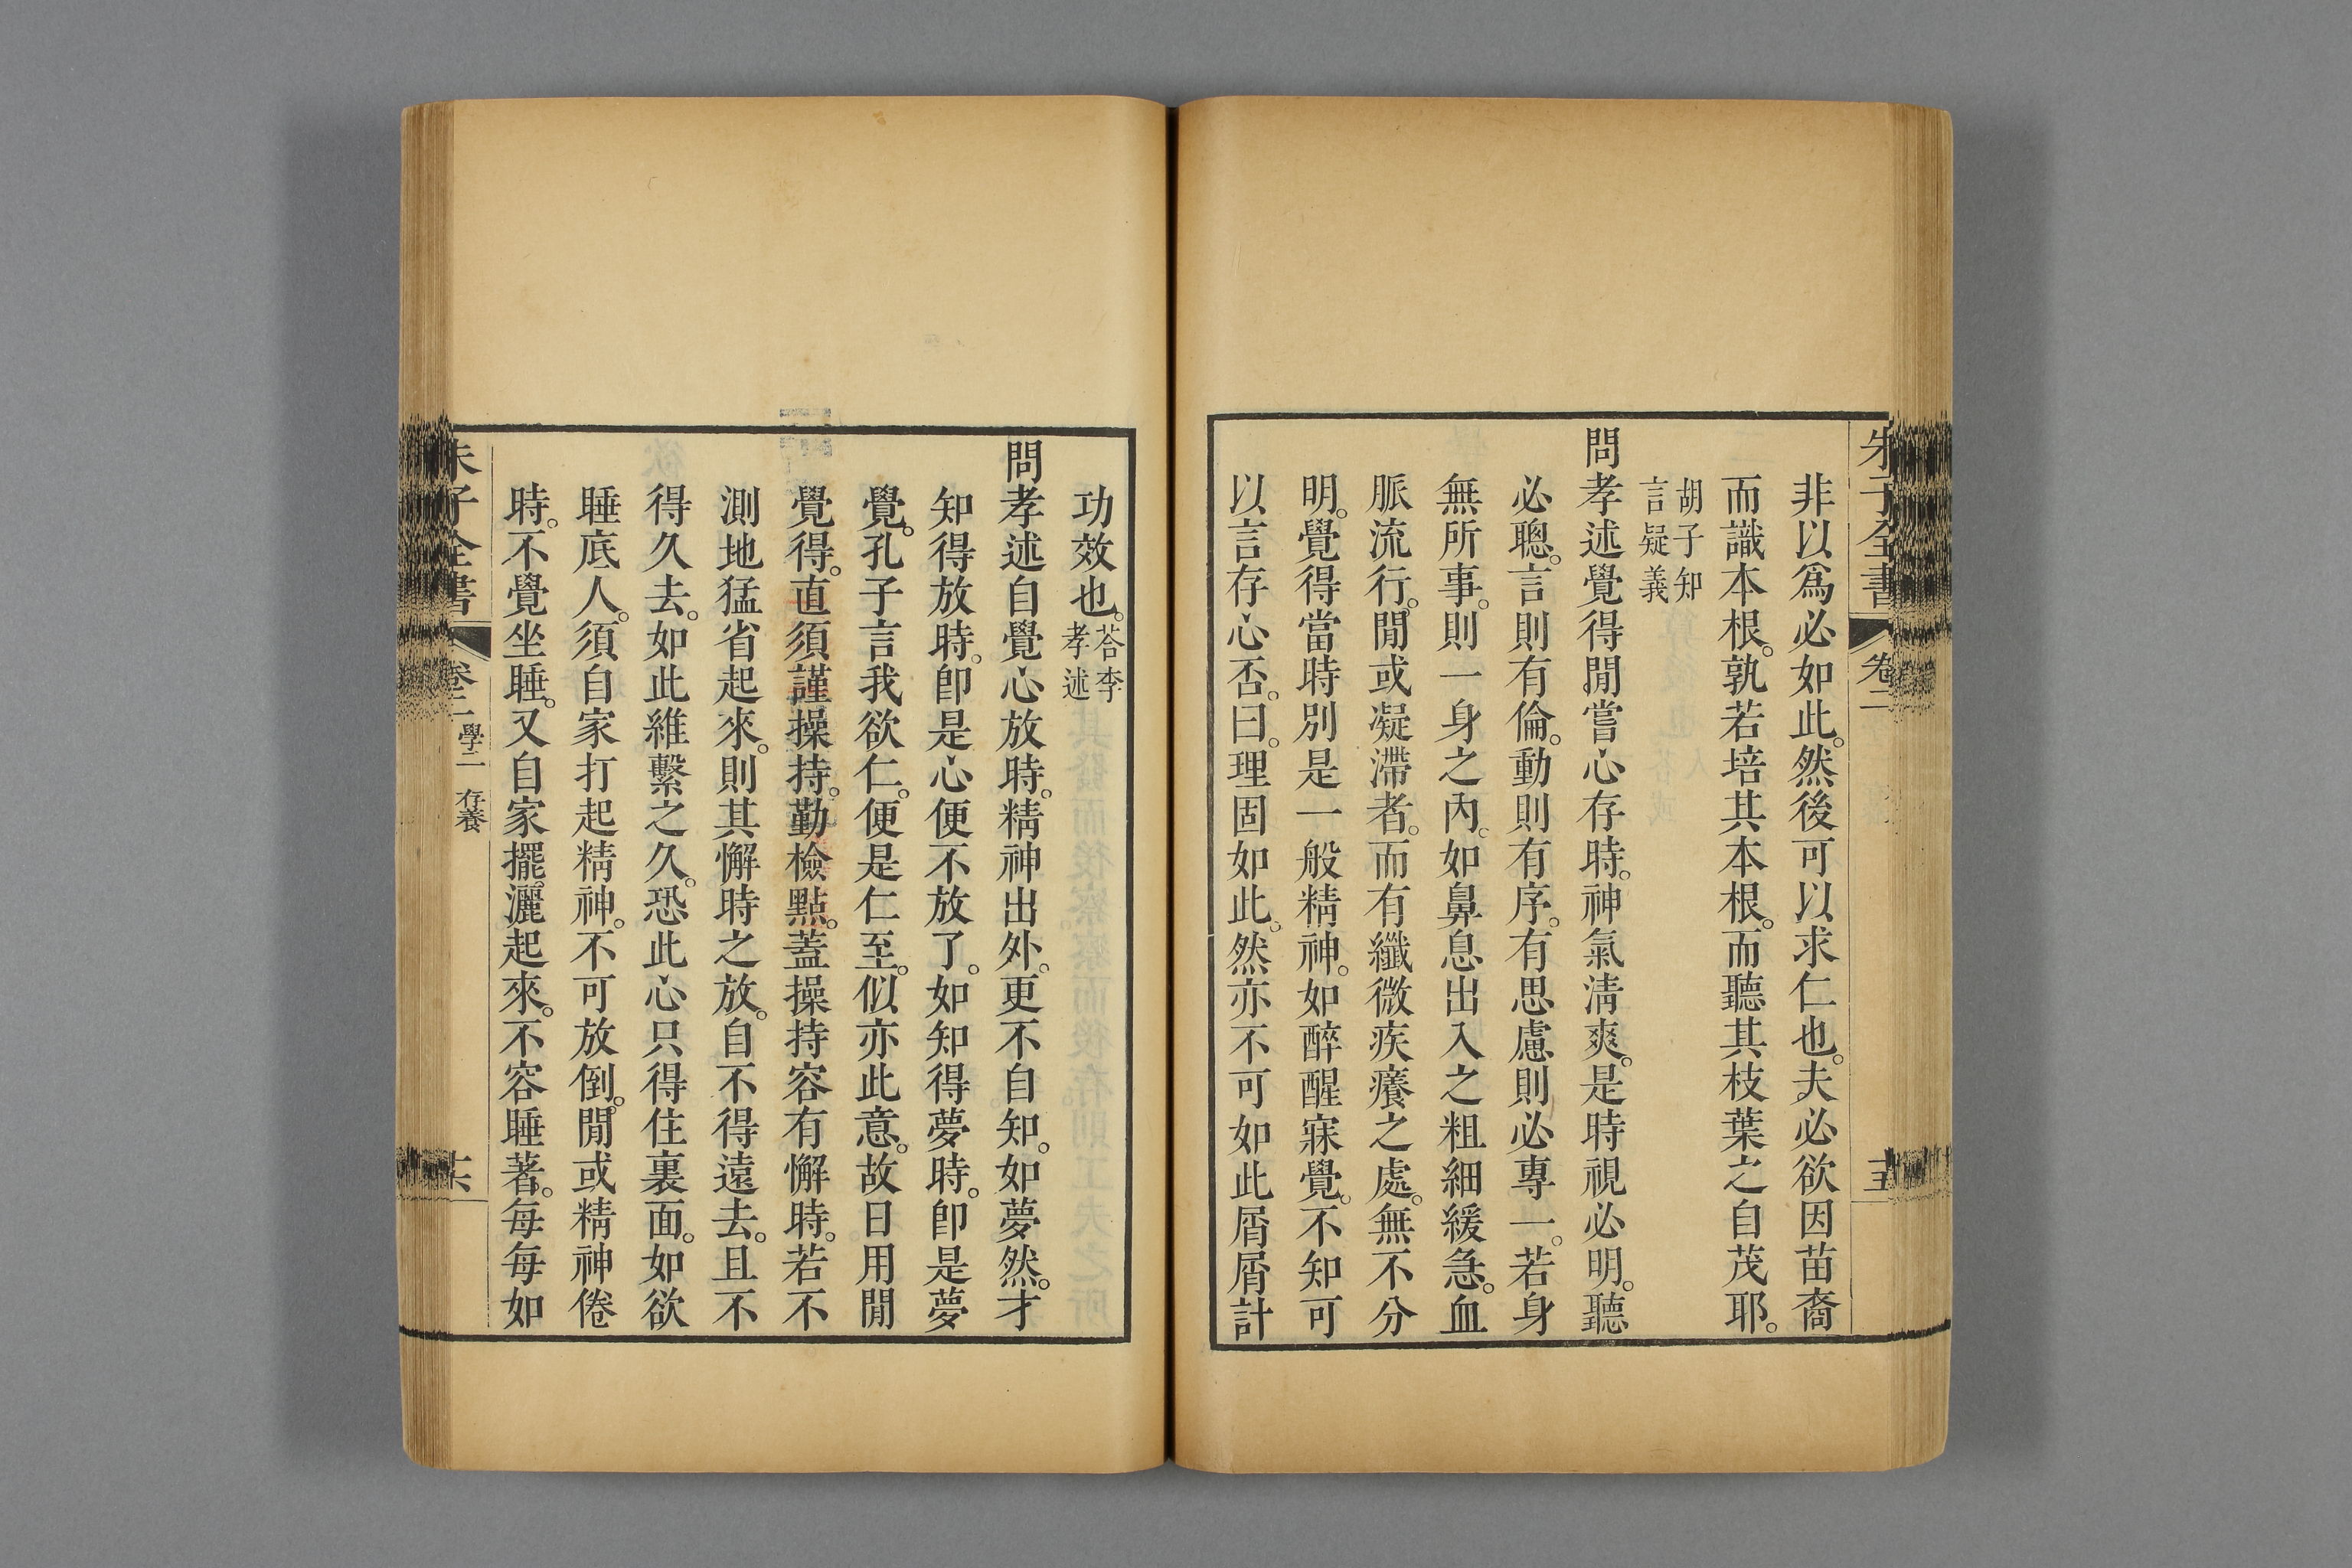 朱子全書 卷二
非以爲必如此。然後可以求仁也。夫必欲因苗裔
而識本根。孰若培其本根。而聽其枝葉之自茂耶。
胡子知
言疑義
問孝述覺得閒嘗心存時。神氣淸爽。是時視必明。聽
必聰。言則有倫。動則有序。有思慮則必專一。若身
無所事。則一身之內。如鼻息出入之粗細緩急。血
脈流行。閒或凝滯者。而有纖微疾癢之處。無不分
明。覺得當時別是一般精神。如醉醒寐覺。不知可
以言存心否。曰。理固如此。然亦不可如此屑屑計
功效也。答李
孝述
問孝述自覺心放時。精神出外。更不自知。如夢然。才
知得放時。卽是心便不放了。如知得夢時。卽是夢
覺。孔子言我欲仁。便是仁至。似亦此意。故日用閒
覺得。直須謹操持。勤檢點。蓋操持容有懈時。若不
測地猛省起來。則其懈時之放。自不得遠去。且不
得久去。如此維繫之久。恐此心只得住裏面。如欲
睡底人。須自家打起精神。不可放倒。閒或精神倦
時。不覺坐睡。又自家擺灑起來。不容睡著。每每如
朱子全書 卷二 學二 存養